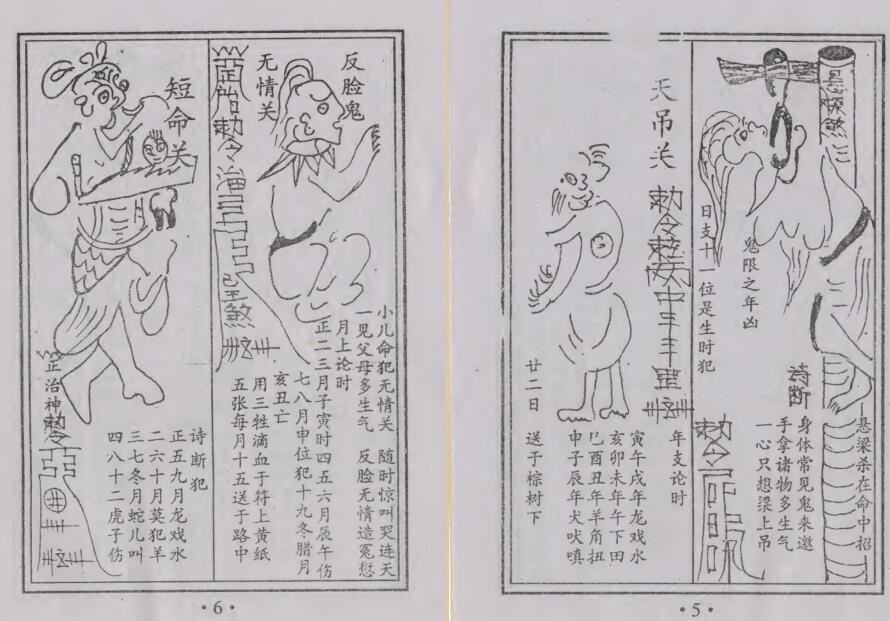 悬梁煞
悬梁杀在命中招
身体常见鬼来邀
手拿诸物多生气
一心只想梁上吊
诗断
鬼限之年凶
日支十一位是生时犯
天吊关
敕令
年支论时
寅午戌年龙戏水
亥卯未年午下田
巳酉丑年羊角扭
申子辰年犬吠嗔
廿二日 送于棕树下
敕令
·5·
反脸鬼
无情关
小儿命犯无情关 随时惊叫哭连天
一见父母多生气 反脸无情造冤愆
月上论时
正二三月子寅时四五六月辰午伤
七八月申位犯十九冬腊月
亥丑亡
用三牲滴血于符上黄纸
五张每月十五送于路中
敕令治
煞
短命关
诗断犯
正五九月龙戏水
二六十月莫犯羊
三七冬月蛇儿叫
四八十二虎子伤
正治神
敕令
·6·